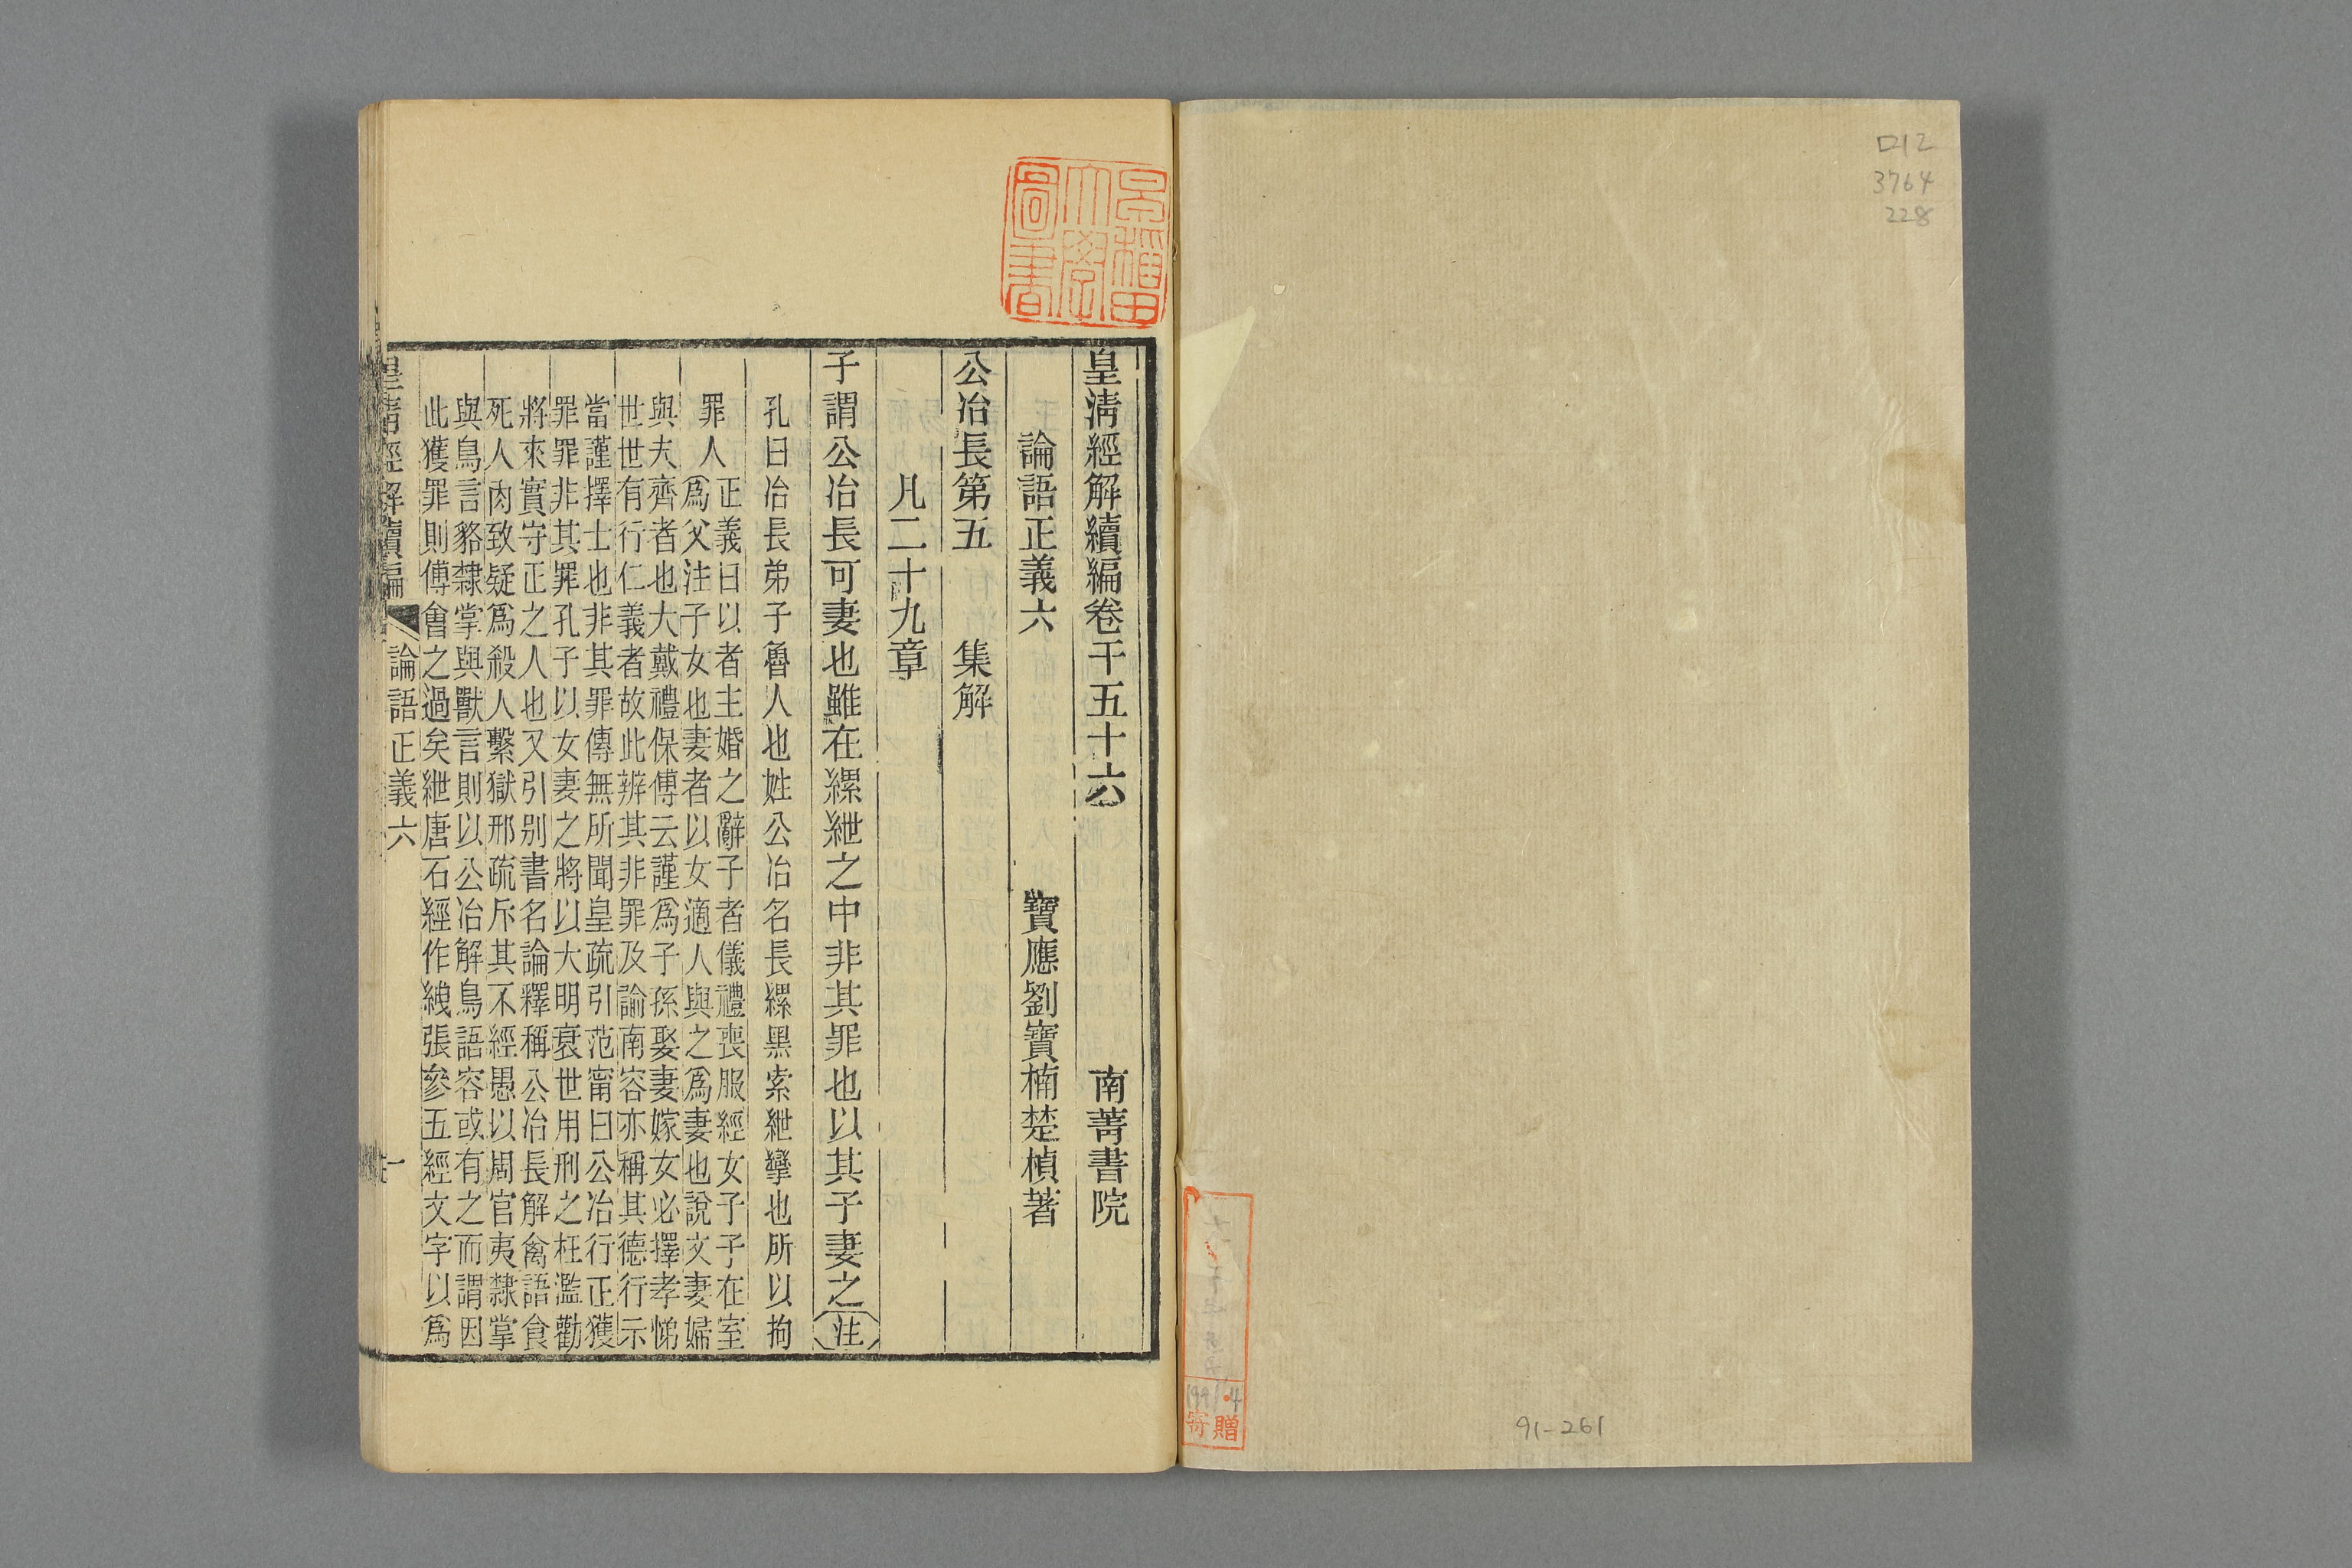 ロ12
3764
228
91-261
1991.4
寄贈
早稲田大學圖書
皇清經解續編卷千五十六　南菁書院
論語正義六　寶應劉寶楠楚楨著
公冶長第五　集解
凡二十九章
子謂公冶長可妻也雖在縲紲之中非其罪也以其子妻之注
孔曰冶長弟子魯人也姓公冶名長縲黑索紲攣也所以拘
罪人
正義曰以者主婚之辭子者儀禮喪服經女子子在室
爲父注子女也妻者以女適人與之爲妻也說文妻婦
與夫齊者也大戴禮保傅云謹爲子孫娶妻嫁女必擇孝悌
世世有行仁義者故此辨其非罪及論南容亦稱其德行示
當謹擇士也非其罪傳無所聞皇疏引范甯曰公冶行正獲
罪罪非其罪孔子以女妻之將以大明衰世用刑之枉濫勸
將來實守正之人也又引别書名論釋稱公冶長解禽語食
死人肉致疑爲殺人繫獄邢疏斥其不經愚以周官夷隸掌
與鳥言貉隸掌與獸言則以公冶解鳥語容或有之而謂因
此獲罪則傅會之過矣紲唐石經作絏張參五經文字以爲
皇清經解續編　論語正義六　一